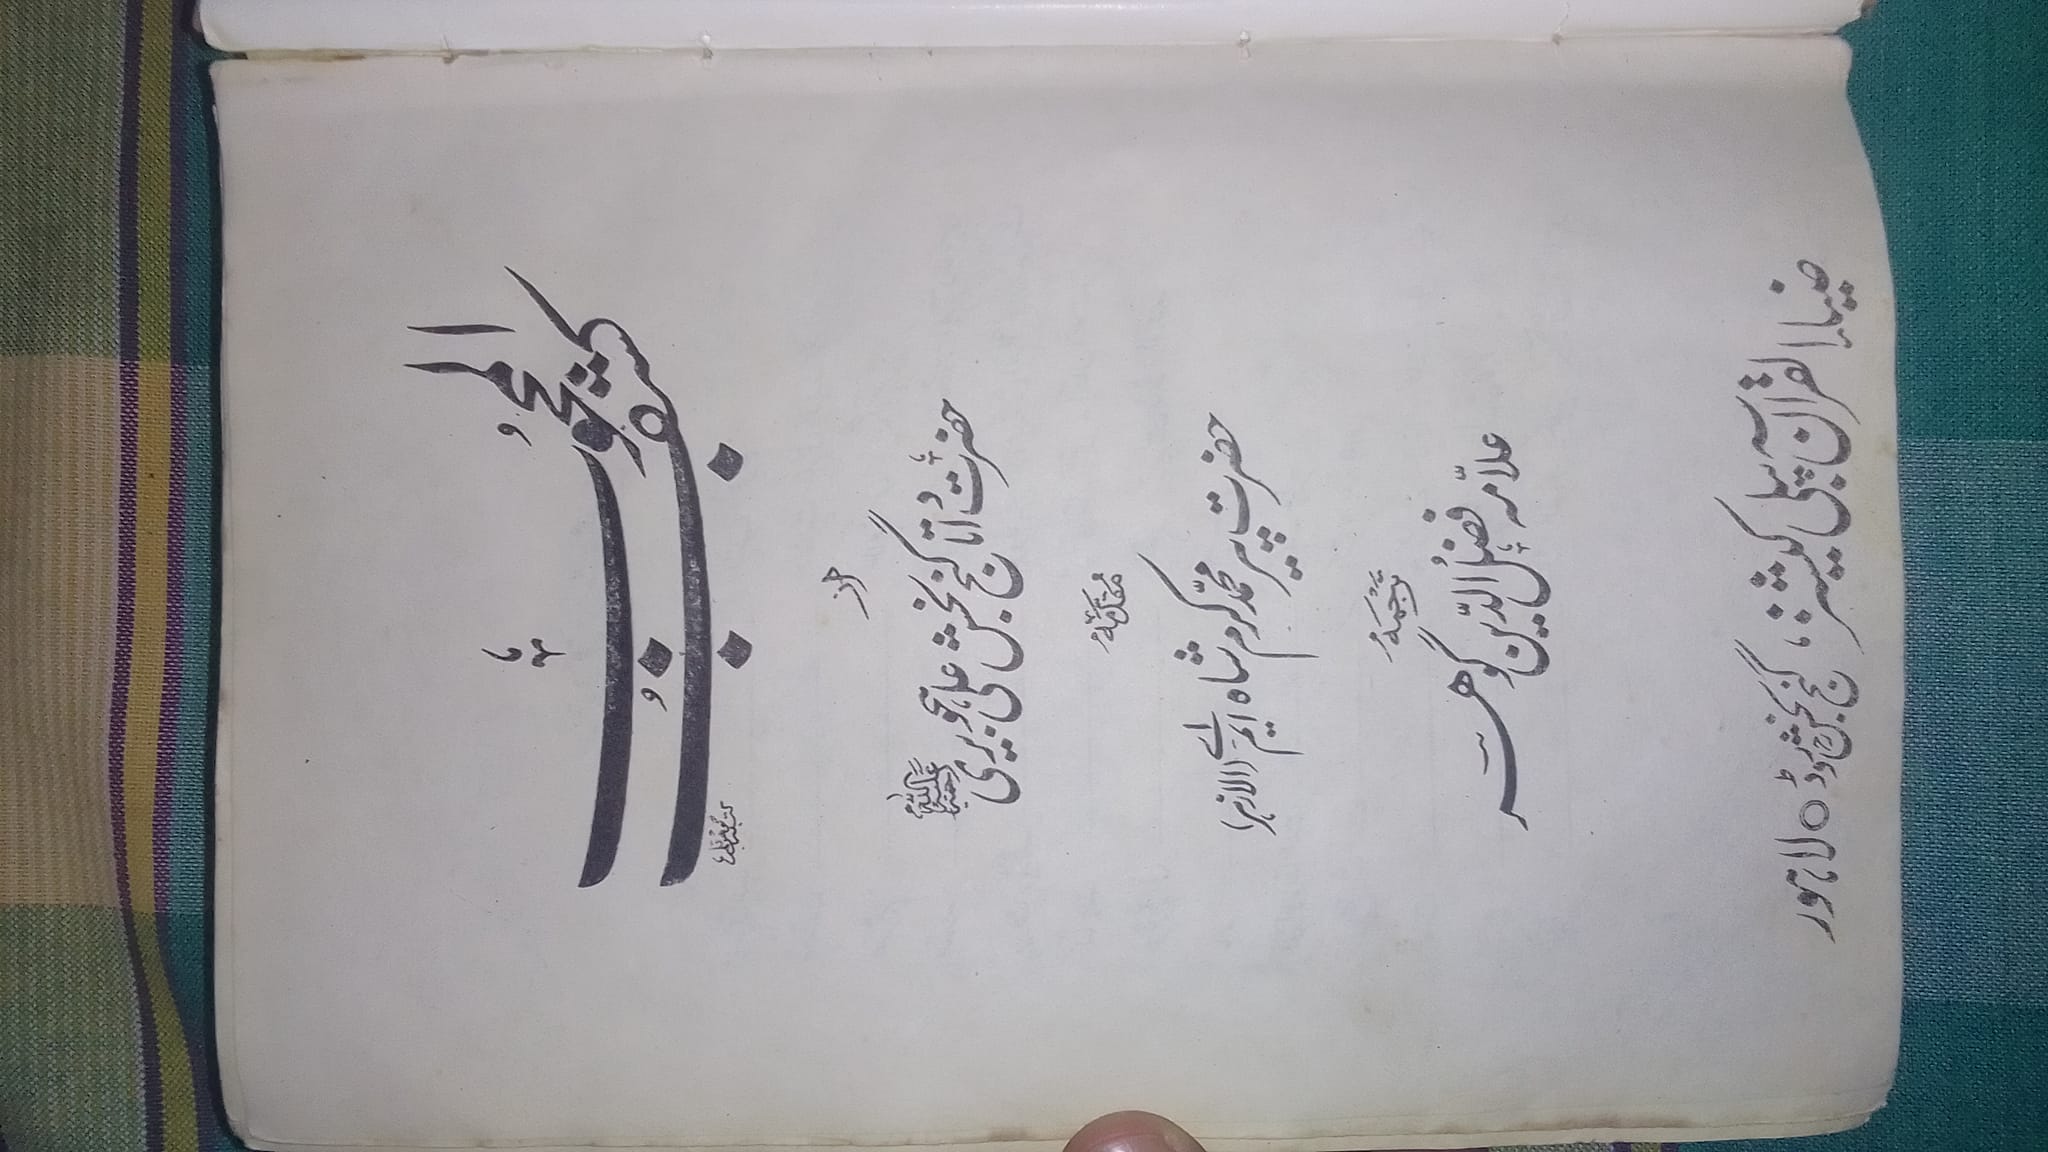 کشف المحجوب
از
حضرت داتا گنج بخش علی ہجویری رحمۃ اللہ علیہ
مقدمہ
حضرت پیر محمد کرم شاہ ایم۔اے (الازہر)
ترجمہ
علامہ فضل الدین گوھر
ضیاء القرآن پبلی کیشنز، گنج بخش روڈ ○ لاہور